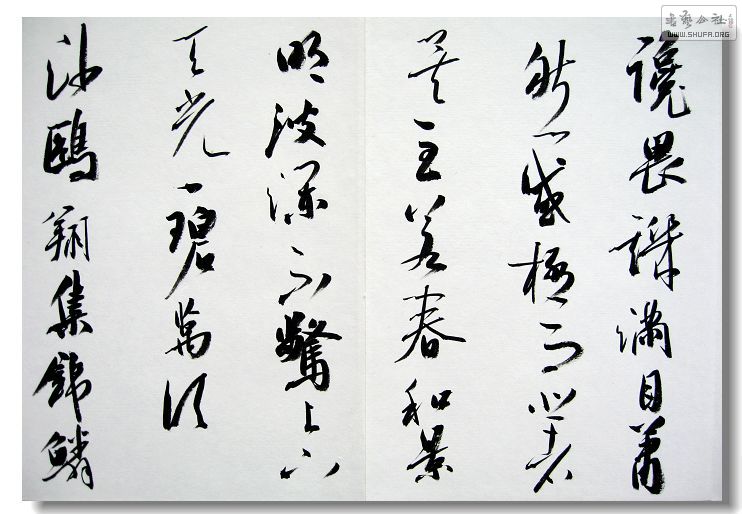 讒畏譏滿目蕭
然感極而悲者
矣至若春和景
明波瀾不驚上下
天光一碧萬頃
沙鷗翔集錦鱗
書藝公社
WWW.SHUFA.ORG